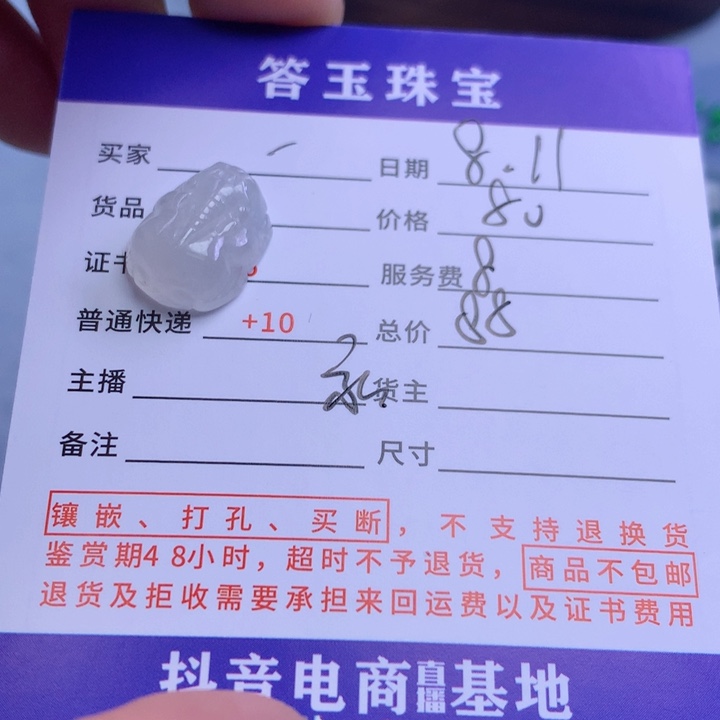 答玉珠宝
买家 日期 8.11
货品 价格 80
证书 服务费 8
普通快递 +10 总价 88
主播 货主
备注 尺寸
镶嵌、打孔、买断，不支持退换货
鉴赏期48小时，超时不予退货，商品不包邮
退货及拒收需要承担来回运费以及证书费用
抖音电商直播基地